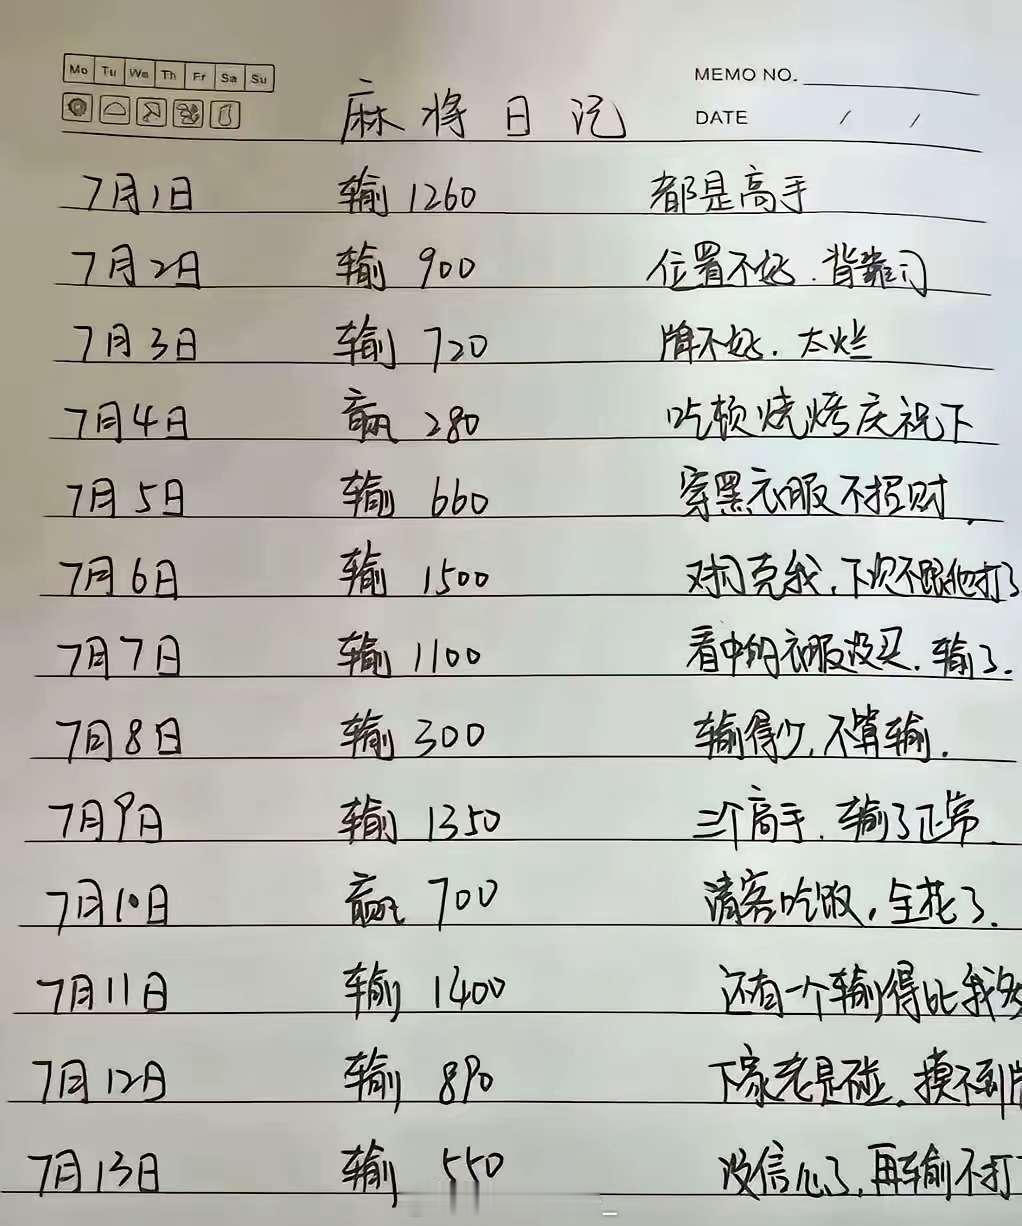 Mo Tu We Th Fr Sa Su
MEMO NO.
麻将日记
DATE / /
7月1日 输 1260 都是高手
7月2日 输 900 位置不好.背靠门
7月3日 输 720 牌不好.太烂
7月4日 赢 280 吃顿烧烤庆祝下
7月5日 输 660 穿黑衣服不招财.
7月6日 输 1500 对门克我,下次不跟他打了
7月7日 输 1100 看中的衣服没买.输了.
7月8日 输 300 输得少,不算输.
7月9日 输 1350 三个高手.输了正常
7月10日 赢 700 请客吃饭,全花了.
7月11日 输 1400 还有一个输得比我多
7月12日 输 890 下家老是碰.摸不到
7月13日 输 550 没信心了,再输不打